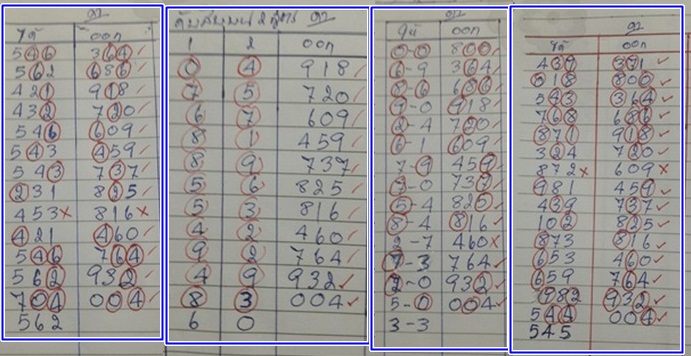 ได้ ออก
546 364 ✓
562 686 ✓
421 918 ✓
432 720 ✓
546 609 ✓
543 459 ✓
543 737 ✓
231 825 ✓
453 × 816 ×
421 460 ✓
546 764 ✓
562 932 ✓
704 004 ✓
562
1 2 ออก
0 4 918 ✓
7 5 720 ✓
6 7 609 ✓
8 1 459 ✓
8 9 737 ✓
5 6 825 ✓
5 3 816 ✓
4 2 460 ✓
9 2 764 ✓
4 9 932 ✓
8 3 004 ✓
6 0
ได้ ออก
0-0 800 ✓
6-9 364 ✓
8-6 686 ✓
9-0 918 ✓
2-4 720 ✓
6-1 609 ✓
7-9 459 ✓
7-0 737 ✓
5-4 825 ✓
8-4 816 ✓
2-7 460 ×
7-3 764 ✓
2-0 932 ✓
5-0 004 ✓
3-3
ได้ ออก
439 371 ✓
018 800 ✓
543 364 ✓
768 686 ✓
871 918 ✓
324 720 ✓
872 × 609 ×
981 459 ✓
439 737 ✓
102 825 ✓
873 816 ✓
653 460 ✓
659 764 ✓
982 932 ✓
544 004 ✓
545